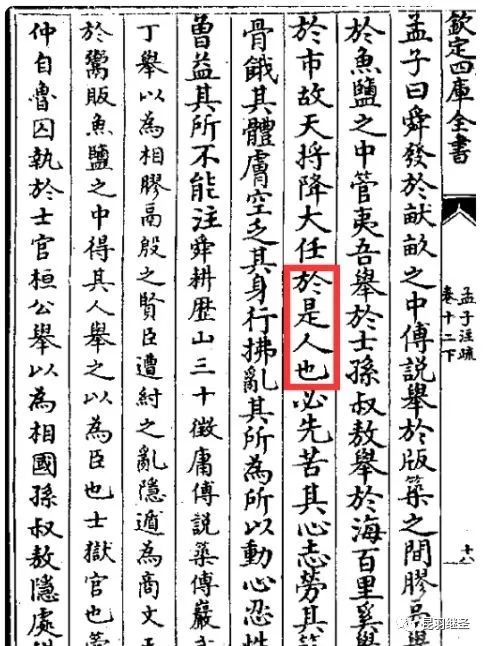 欽定四庫全書
孟子注疏
卷十二下
十八
孟子曰舜發於畎畝之中傅說舉於版築之間膠鬲舉
於魚鹽之中管夷吾舉於士孫叔敖舉於海百里奚舉
於市故天將降大任於是人也必先苦其心志勞其筋
骨餓其體膚空乏其身行拂亂其所為所以動心忍性
曾益其所不能注舜耕歷山三十徵庸傅說築傅巖武
丁舉以為相膠鬲殷之賢臣遭紂之亂隱遁為商文王
於鬻販魚鹽之中得其人舉之以為臣也士獄官也管
仲自魯囚執於士官桓公舉以為相國孫叔敖隱處
昆羽继圣